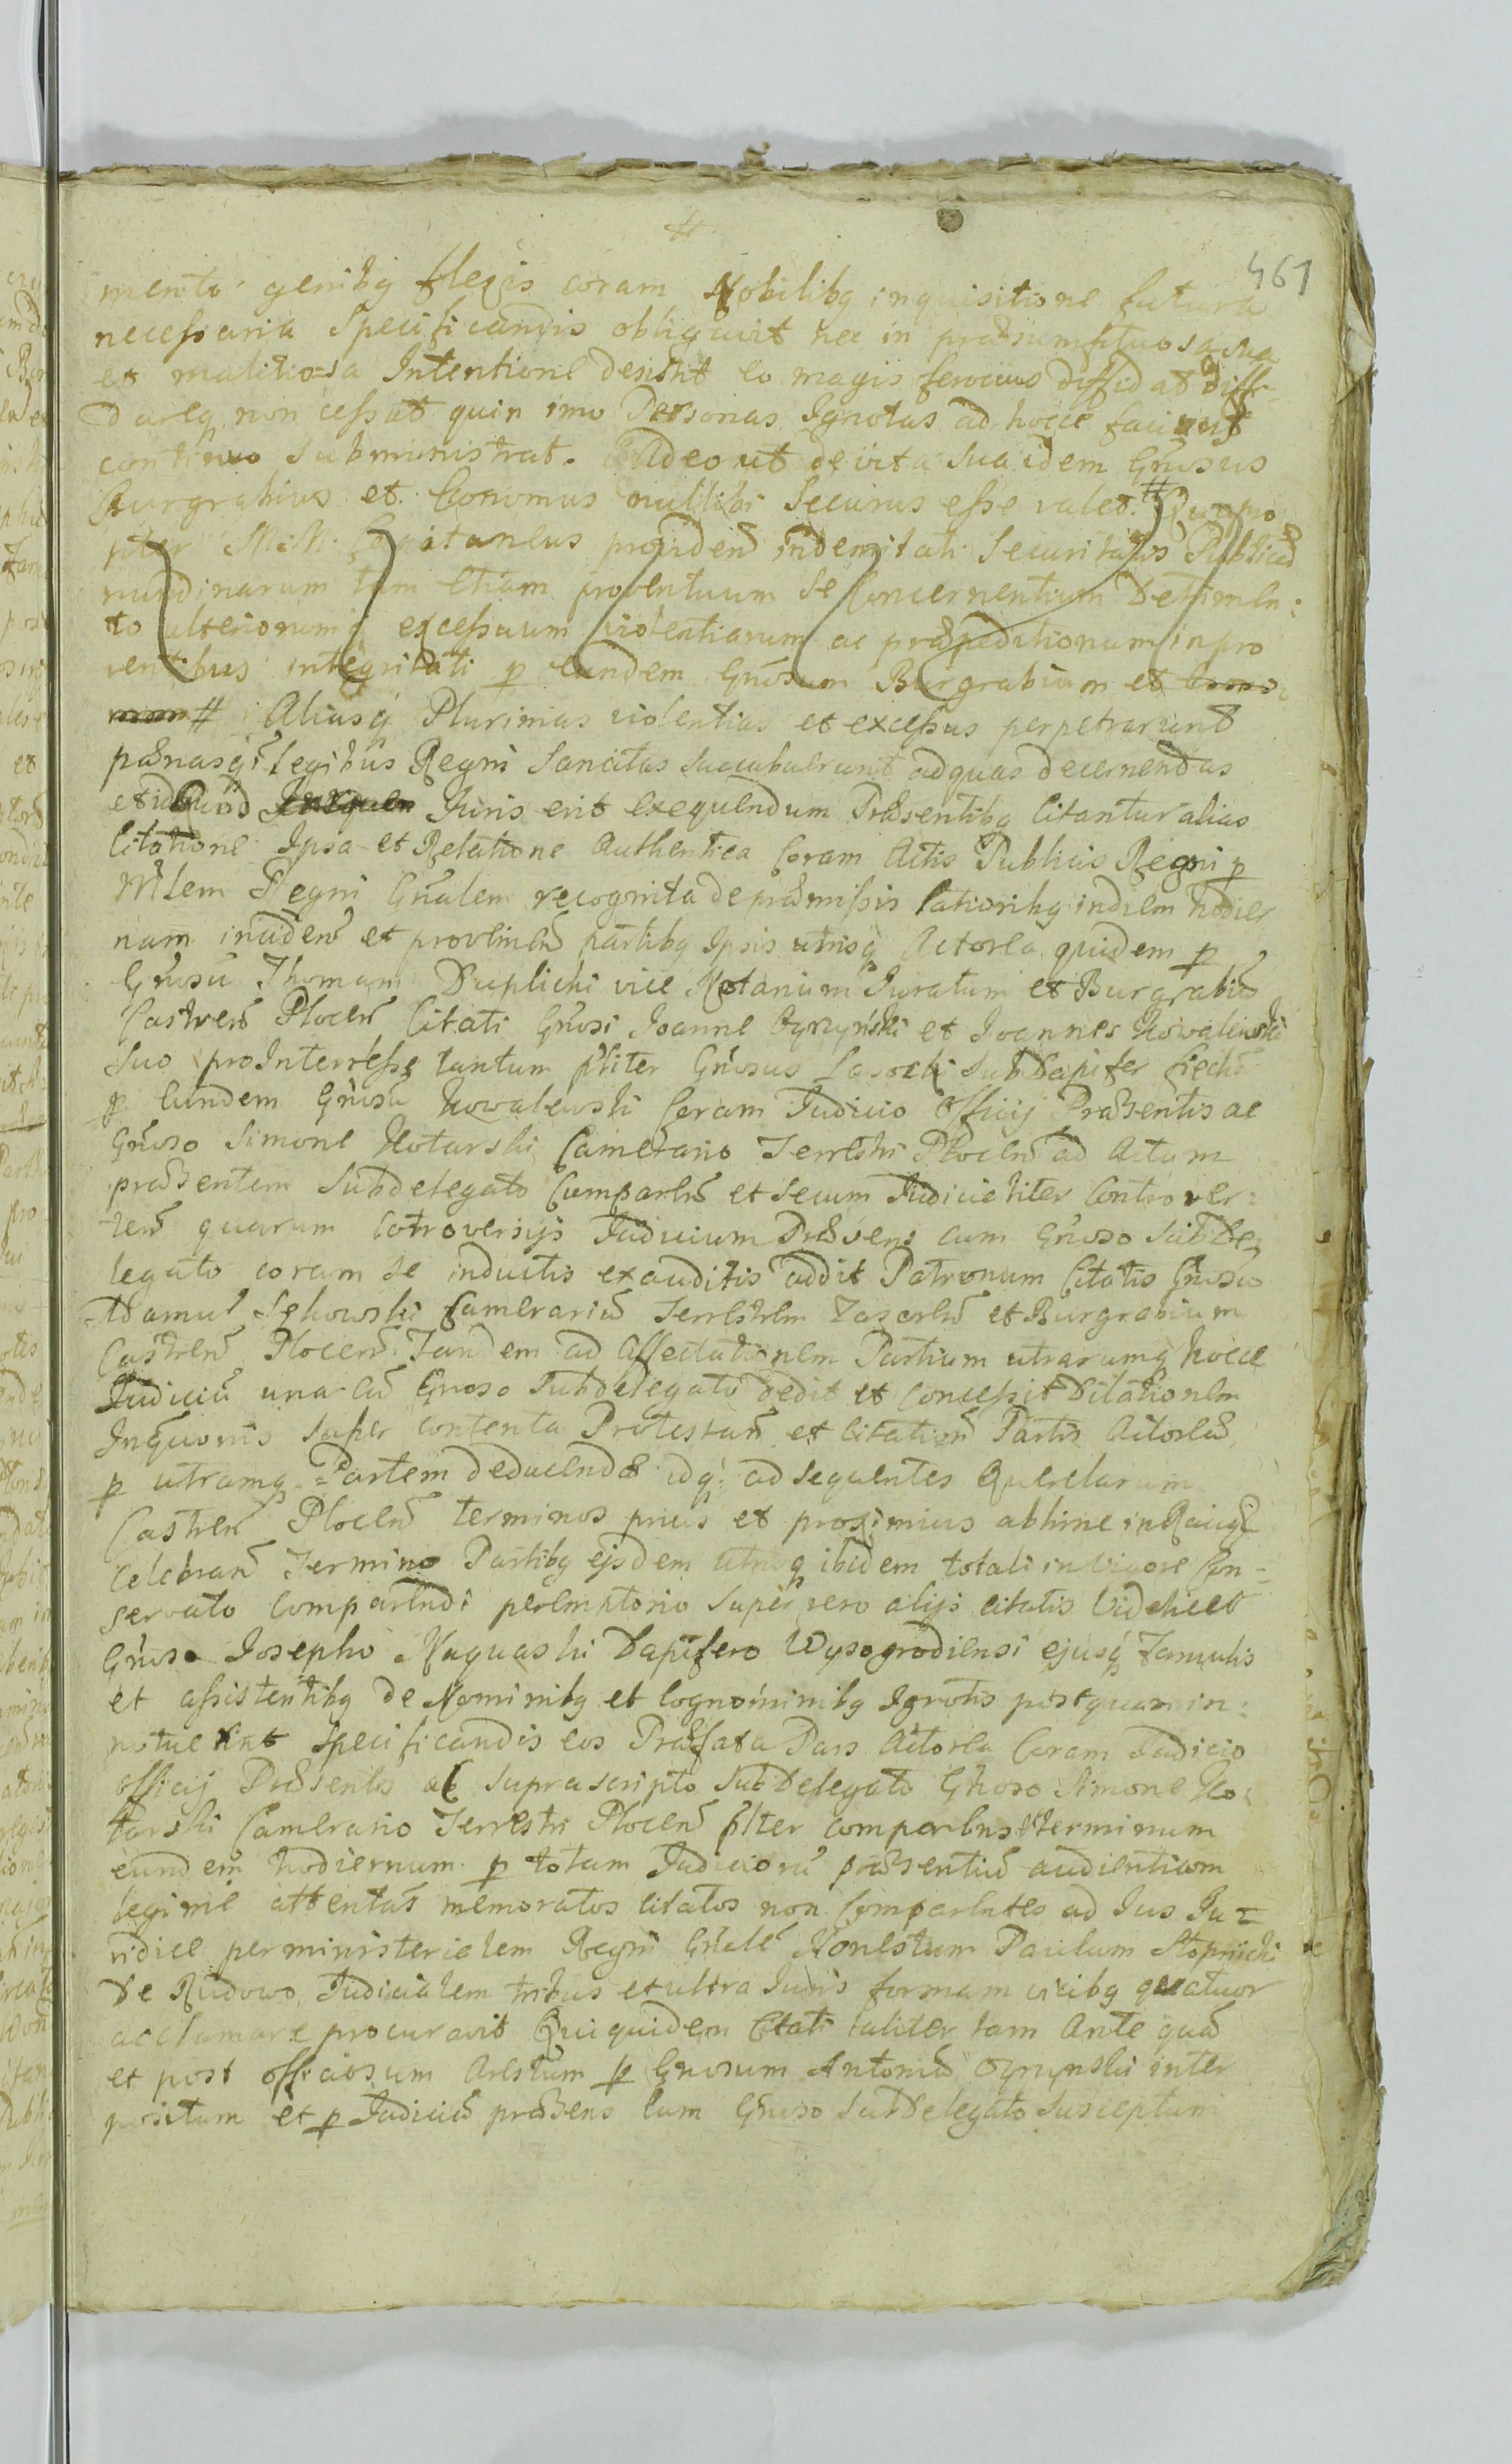 #
461
mento genibq flexis coram Nobilibq inquisitione futura
necessaria Specificandis obligavit nec in præsumptuosa sua
et malitio=sa Intentione desistit eo magis ferocius diffidat diffi-
dareq non cessat quin imo Personas Ignotas ad hocce facinus
continuo subministrat. Adeo ut de vita sua idem Gnosus
Burgrabius et Economus nullibi Securus esse valet.# Quapro
pter M: M: Capitaneus providen indemnitati Securitatis Publicæ
nundinarum tum etiam proventuum se Concernentium Detrimen:
to ulteriorumq excessuum violentiarum ac præpeditionum in pro
ventibus integritati p eundem Gnosum Burgrabium et
# Aliasq Plurimas violentias et excessus perpetrarunt
pænasq legibus Regni Sancitas succubuerunt ad quas decernendas
et id Quod Juris erit exequendum Præsentibq Citantur alias
Citatione Ipsa et Relatione Authentica Coram Actis Publicis Regni p
Mlem Regni Gnalem recognita de præmissis latioribq in diem hodier
nam inciden et provenien partibq Ipsis utrisq Actorea quidem p
Gnosu Thomam Duplicki vice Notarium Juratum et Burgrabiu
Castren Plocen Citati Gnosi Joanne Ogrzyński et Joannes Kowalewski
suo pro Interesse tantum pliter Gnosus Lasocki SubDapifer Ciech
p eundem Gnosu Kowalewski Coram Judicio Officij Præsentis ac
Gnoso Simone Kotarski Camerario Terrestri Plocen ad Actum
præsentem Subdelegato Comparen et secum Judicialiter Controver:
ten quarum Cotroversijs Judicium Præsens cum Gnoso Subde
legato coram se inductis exauditis addit Patronum Citatis Gnosu
Adamu Camerariu Terrestrem et Burgrabium
Castren Plocen. Tandem ad Affectationem Partium utrarumq hocce
Judiciu una cu Gnoso Subdelegato dedit et Concessit Dilationem
Inquonis super contenta Protestan et Citation Partis Actoreæ
p utramq Partem deducendæ idq ad sequentes Querelarum
Castren Plocen terminos prius et proximius abhinc in Raciąż
celebran Termino Partibq ejsdem utrisq ibidem totali in Vigore Con=
servato Comparendi peremptorio super vero alijs citatis Videlicet
Gnoso Josepho Naquaski Dapifero Wysogrodiensi ejusq Famulis
et assistentibq de Nominibq et Cognominibq Ignotis postquam in:
notuerint Specificandis eos Præfata Pars Actorea Coram Judicio
officij Præsentis ac suprascripto SubDelegato Gnoso Simone Ko
tarski Camerario Terrestri Plocen pliter comparens terminum
eundem hodiernum p totam Judicioru præsentiu audientiam
legime attentas memoratos citatos non Comparentes ad Jus Ju=
ridice per ministerialem Regni Gnale Honestum Paulum Stopnicki
De Rudowo Judicialem tribus et ultra Juris formam vicibq quatuor
acclamare procuravit Qui quidem Citati taliter tam Ante qua
et post officiosum Arestum p Gnosum Antoniu Ogrzynski inter
positum et p Judiciu præsens cum Gnoso SubDelegato susceptum